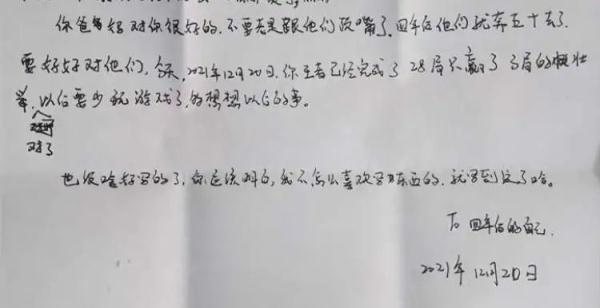 你爸妈对你很好的，不要老是跟他们顶嘴了。四年后他们就奔五十去了。
要好好对他们，今天，2021年12月20日，你王者已经完成了28局只赢了3局的壮
举，以后要少玩游戏了，多想想以后的事。
对了
也没啥好写的了，你应该明白，我不怎么喜欢写东西的，就写到这了哈。
To 四年后的自己。
2021年12月20日